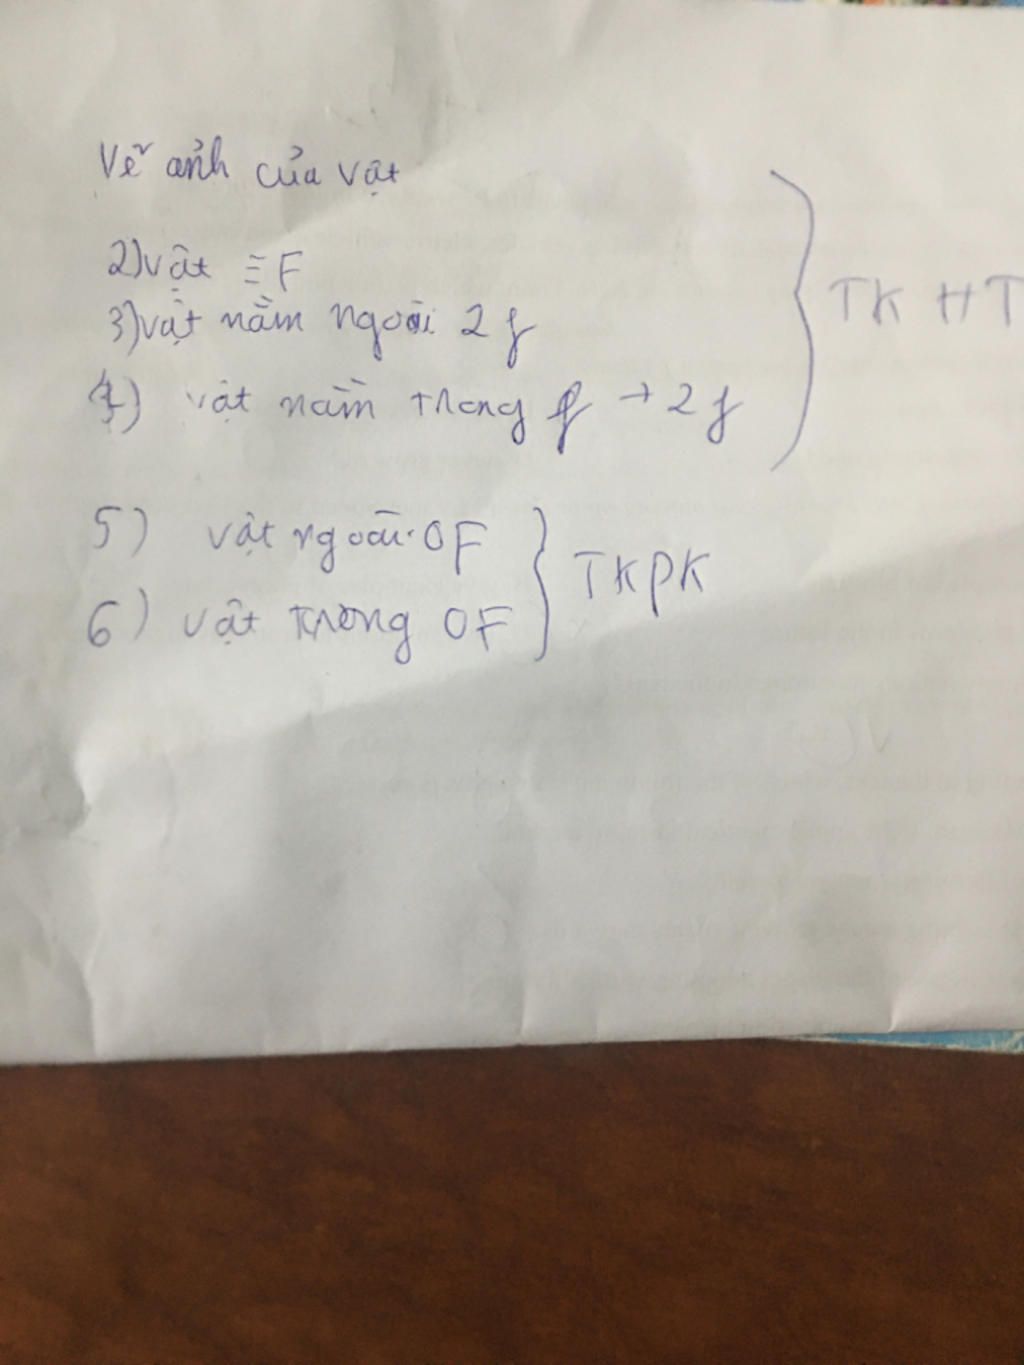 Vẽ ảnh của vật
2) vật ≡ F
3) vật nằm ngoài 2f
4) vật nằm trong f → 2f
TK HT
5) vật ngoài OF
6) vật trong OF
TKPK